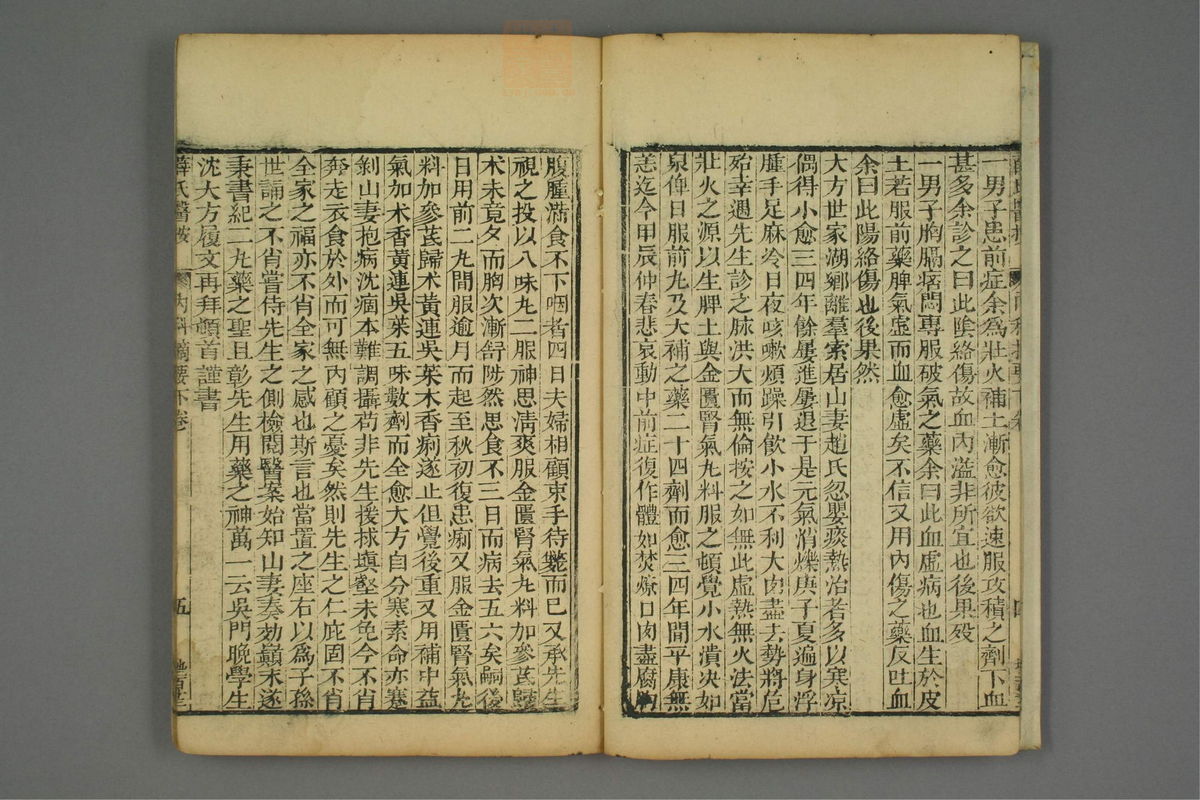 一男子患前症余為壯火補土漸愈彼欲速服攻積之劑下血
甚多余診之曰此陰絡傷故血內溢非所宜也後果歿
一男子胸膈痞悶專服破氣之藥余曰此血虛病也血生於皮
土若服前藥脾氣虛而血愈虛矣不信又用內傷之藥反吐血
余曰此陽絡傷也後果然
大方世家湖鄉離羣索居山妻趙氏忽嬰痰熱治者多以寒凉
偶得小愈三四年餘屢進屢退于是元氣消爍庚子夏遍身浮
腫手足麻冷日夜咳嗽煩躁引飲小水不利大肉盡去勢將危
殆幸遇先生診之脉洪大而無倫按之如無此虛熱無火法當
壯火之源以生脾土與金匱腎氣丸料服之頓覺小水潰決如
泉俾日服前丸及大補之藥二十四劑而愈三四年間平康無
恙迄今甲辰仲春悲哀動中前症復作體如焚燎口肉盡腐胸
腹腫滿食不下咽者四日夫婦相顧束手待斃而已又承先生
視之投以八味丸二服神思清爽服金匱腎氣丸料加參芪歸
术未竟夕而胸次漸舒陟然思食不三日而病去五六矣嗣後
日用前二丸間服逾月而起至秋初復患痢又服金匱腎氣丸
料加參芪歸术黃連吳茱木香痢遂止但覺後重又用補中益
氣加木香黃連吳茱五味數劑而全愈大方自分寒素命亦蹇
剝山妻抱病沈痼本難調攝苟非先生援捄塡壑未免今不肖
奔走衣食於外而可無內顧之憂矣然則先生之仁庇固不肖
全家之福亦不肖全家之感也斯言也當置之座右以為子孫
世誦之不肖嘗侍先生之側檢閱醫案始知山妻奏効巔末遂
秉書紀二丸藥之聖且彰先生用藥之神萬一云吳門晚學生
沈大方履文再拜頓首謹書
薛氏醫按 內科摘要下卷 五